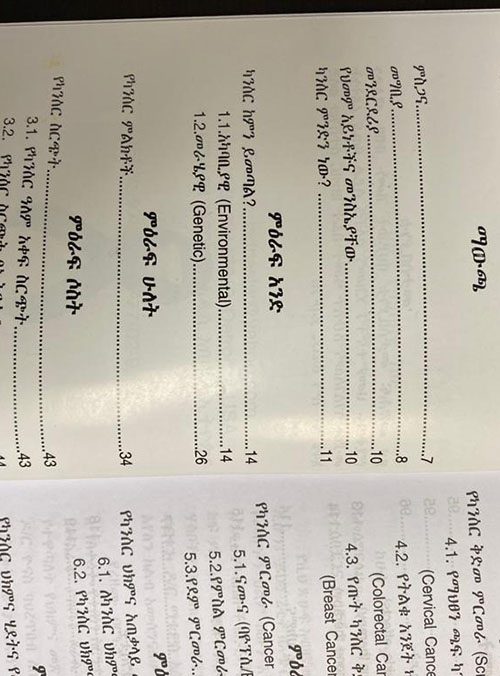 ማውጫ
ምስጋና..................................................7
መግቢያ..................................................8
መንደርደሪያ..............................................10
የህመም አይነቶችና መንስኤያቸው..............................10
ካንሰር ምንድን ነው? .......................................11
ምዕራፍ አንድ
ካንሰር ከምን ይመጣል?.......................................14
1.1.አካባቢያዊ (Environmental)..............................14
1.2.መራሂያዊ (Genetic).....................................26
ምዕራፍ ሁለት
የካንሰር ምልክቶች.........................................34
ምዕራፍ ሶስት
የካንሰር ስርጭት..........................................43
3.1. የካንሰር ዓለም አቀፍ ስርጭት............................43
3.2. የካንሰር ስርጭት
የካንሰር ቅድመ ምርመራ
4.1. የማህፀን ጫፍ
(Cervical
4.2. የትልቁ አንጀት
(Colorectal
4.3. የጡት ካንሰር
(Breast Cancer
የካንሰር ምርመራ (Cancer
5.1.ናሙና
5.2.የምስል
5.3.የደም ምርመራ..
የካንሰር ህክምና
6.1. ለካንሰር
6.2. የካንሰር
የካንሰር ህክምና ሂደትና